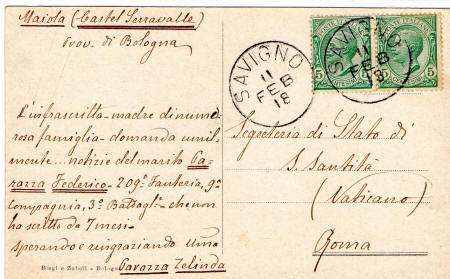 Maiola (Castel Serravalle)
Prov. di Bologna
SAVIGNO
11
FEB
18
SAVIGNO
11
FEB
18
5
5
L'infrascritta - madre di nume
rosa famiglia - domanda umil
mente... notizie del marito Pa
razza Federico - 209° Fanteria, 9ª
Compagnia, 3° Battagl° - che non
ha scritto da 7 mesi -
Sperando e ringraziando
Parazza Zelinda
Segreteria di Stato di
S. Santità
(Vaticano)
Roma